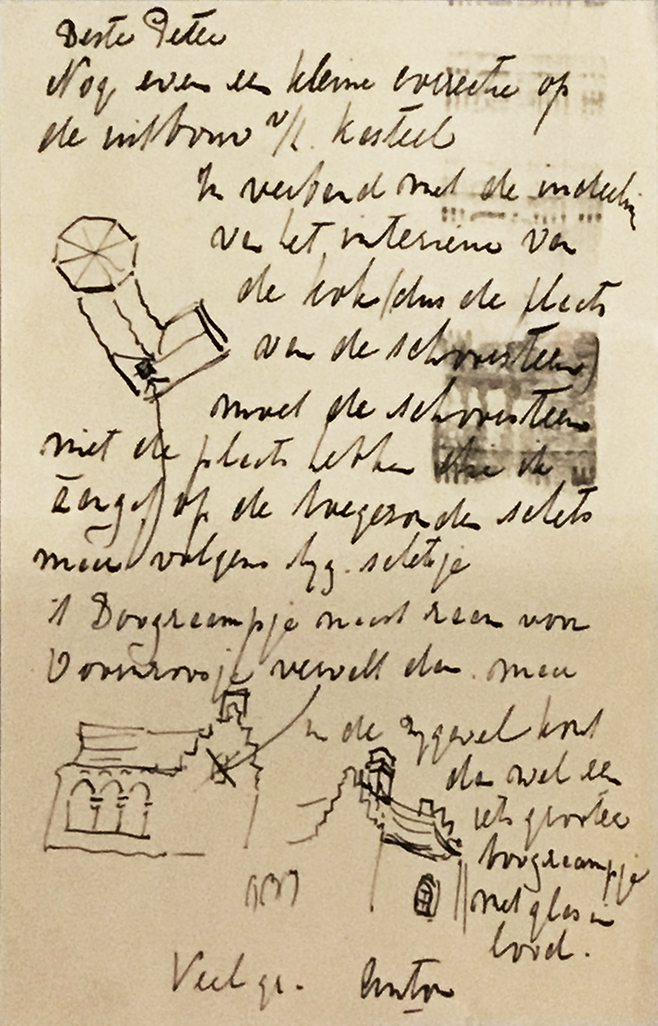 Beste Peter
Nog even een kleine correctie op
de uitbouw v/h. kasteel
In verband met de indeling
van het interieur van
de hok (dus de plaats
van de schoorsteen)
moet de schoorsteen
niet de plaats hebben die ik
aangaf op de toegezonden schets
maar volgens bijg. schetsje
't Boograampje naast raam voor
Doornroosje vervalt dan. maar
in de zijgevel komt
dan wel een
iets grooter
boograampje
met glas in
lood.
Veel gr. Anton